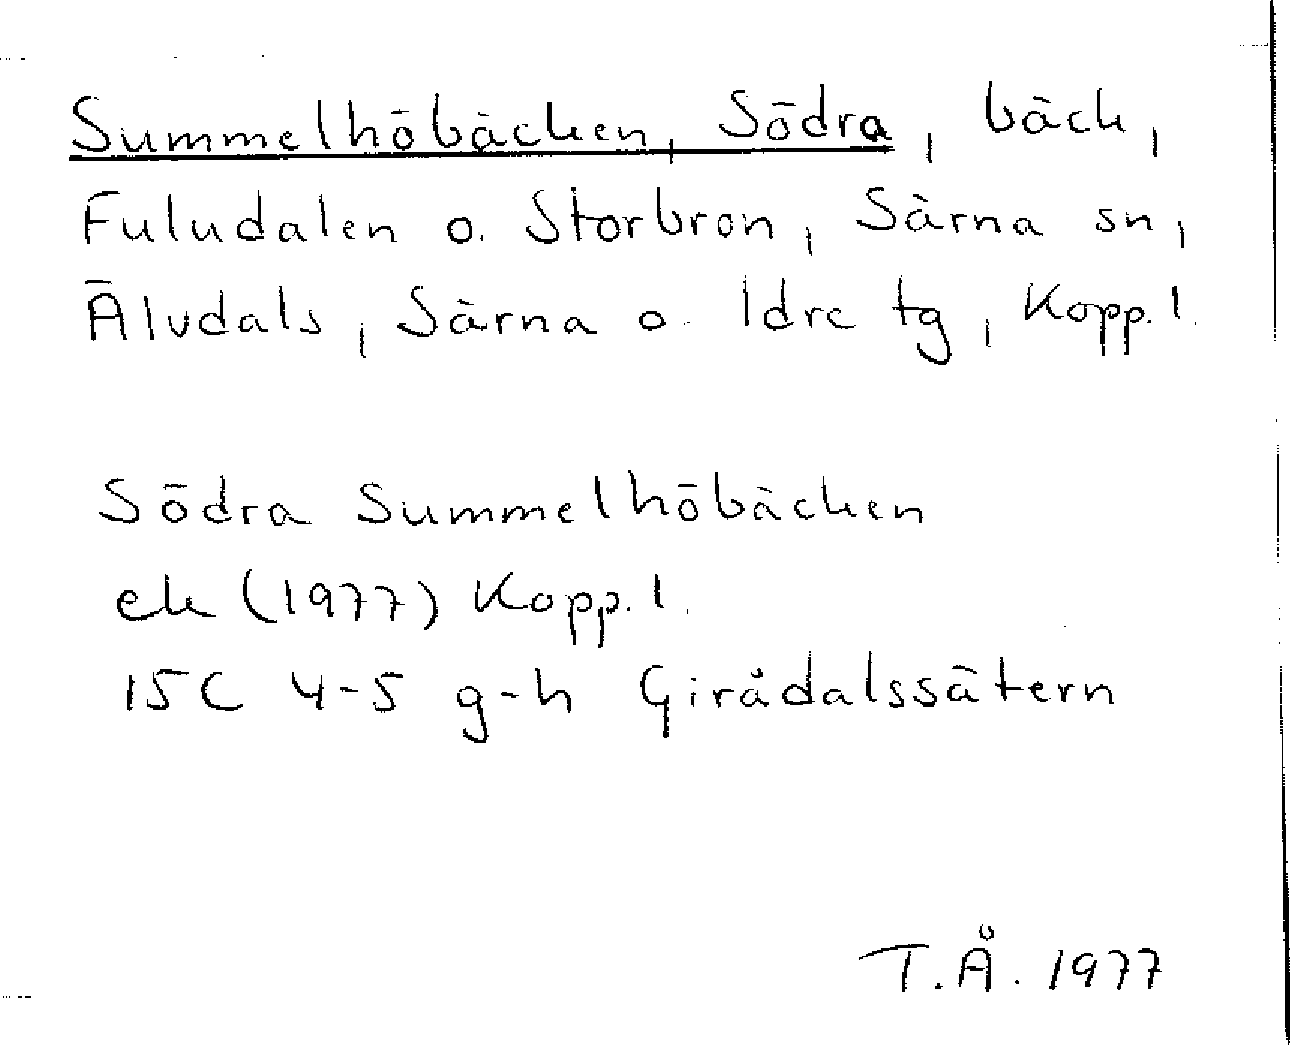 Summelhöbäcken, Södra, bäck,
Fuludalen o. Storbron, Särna sn,
Älvdals, Särna o. Idre tg, Kopp. l.
Södra Summelhöbäcken
ek (1977) Kopp. l.
15C 4-5 g-h Girådalssätern
T.Å. 1977